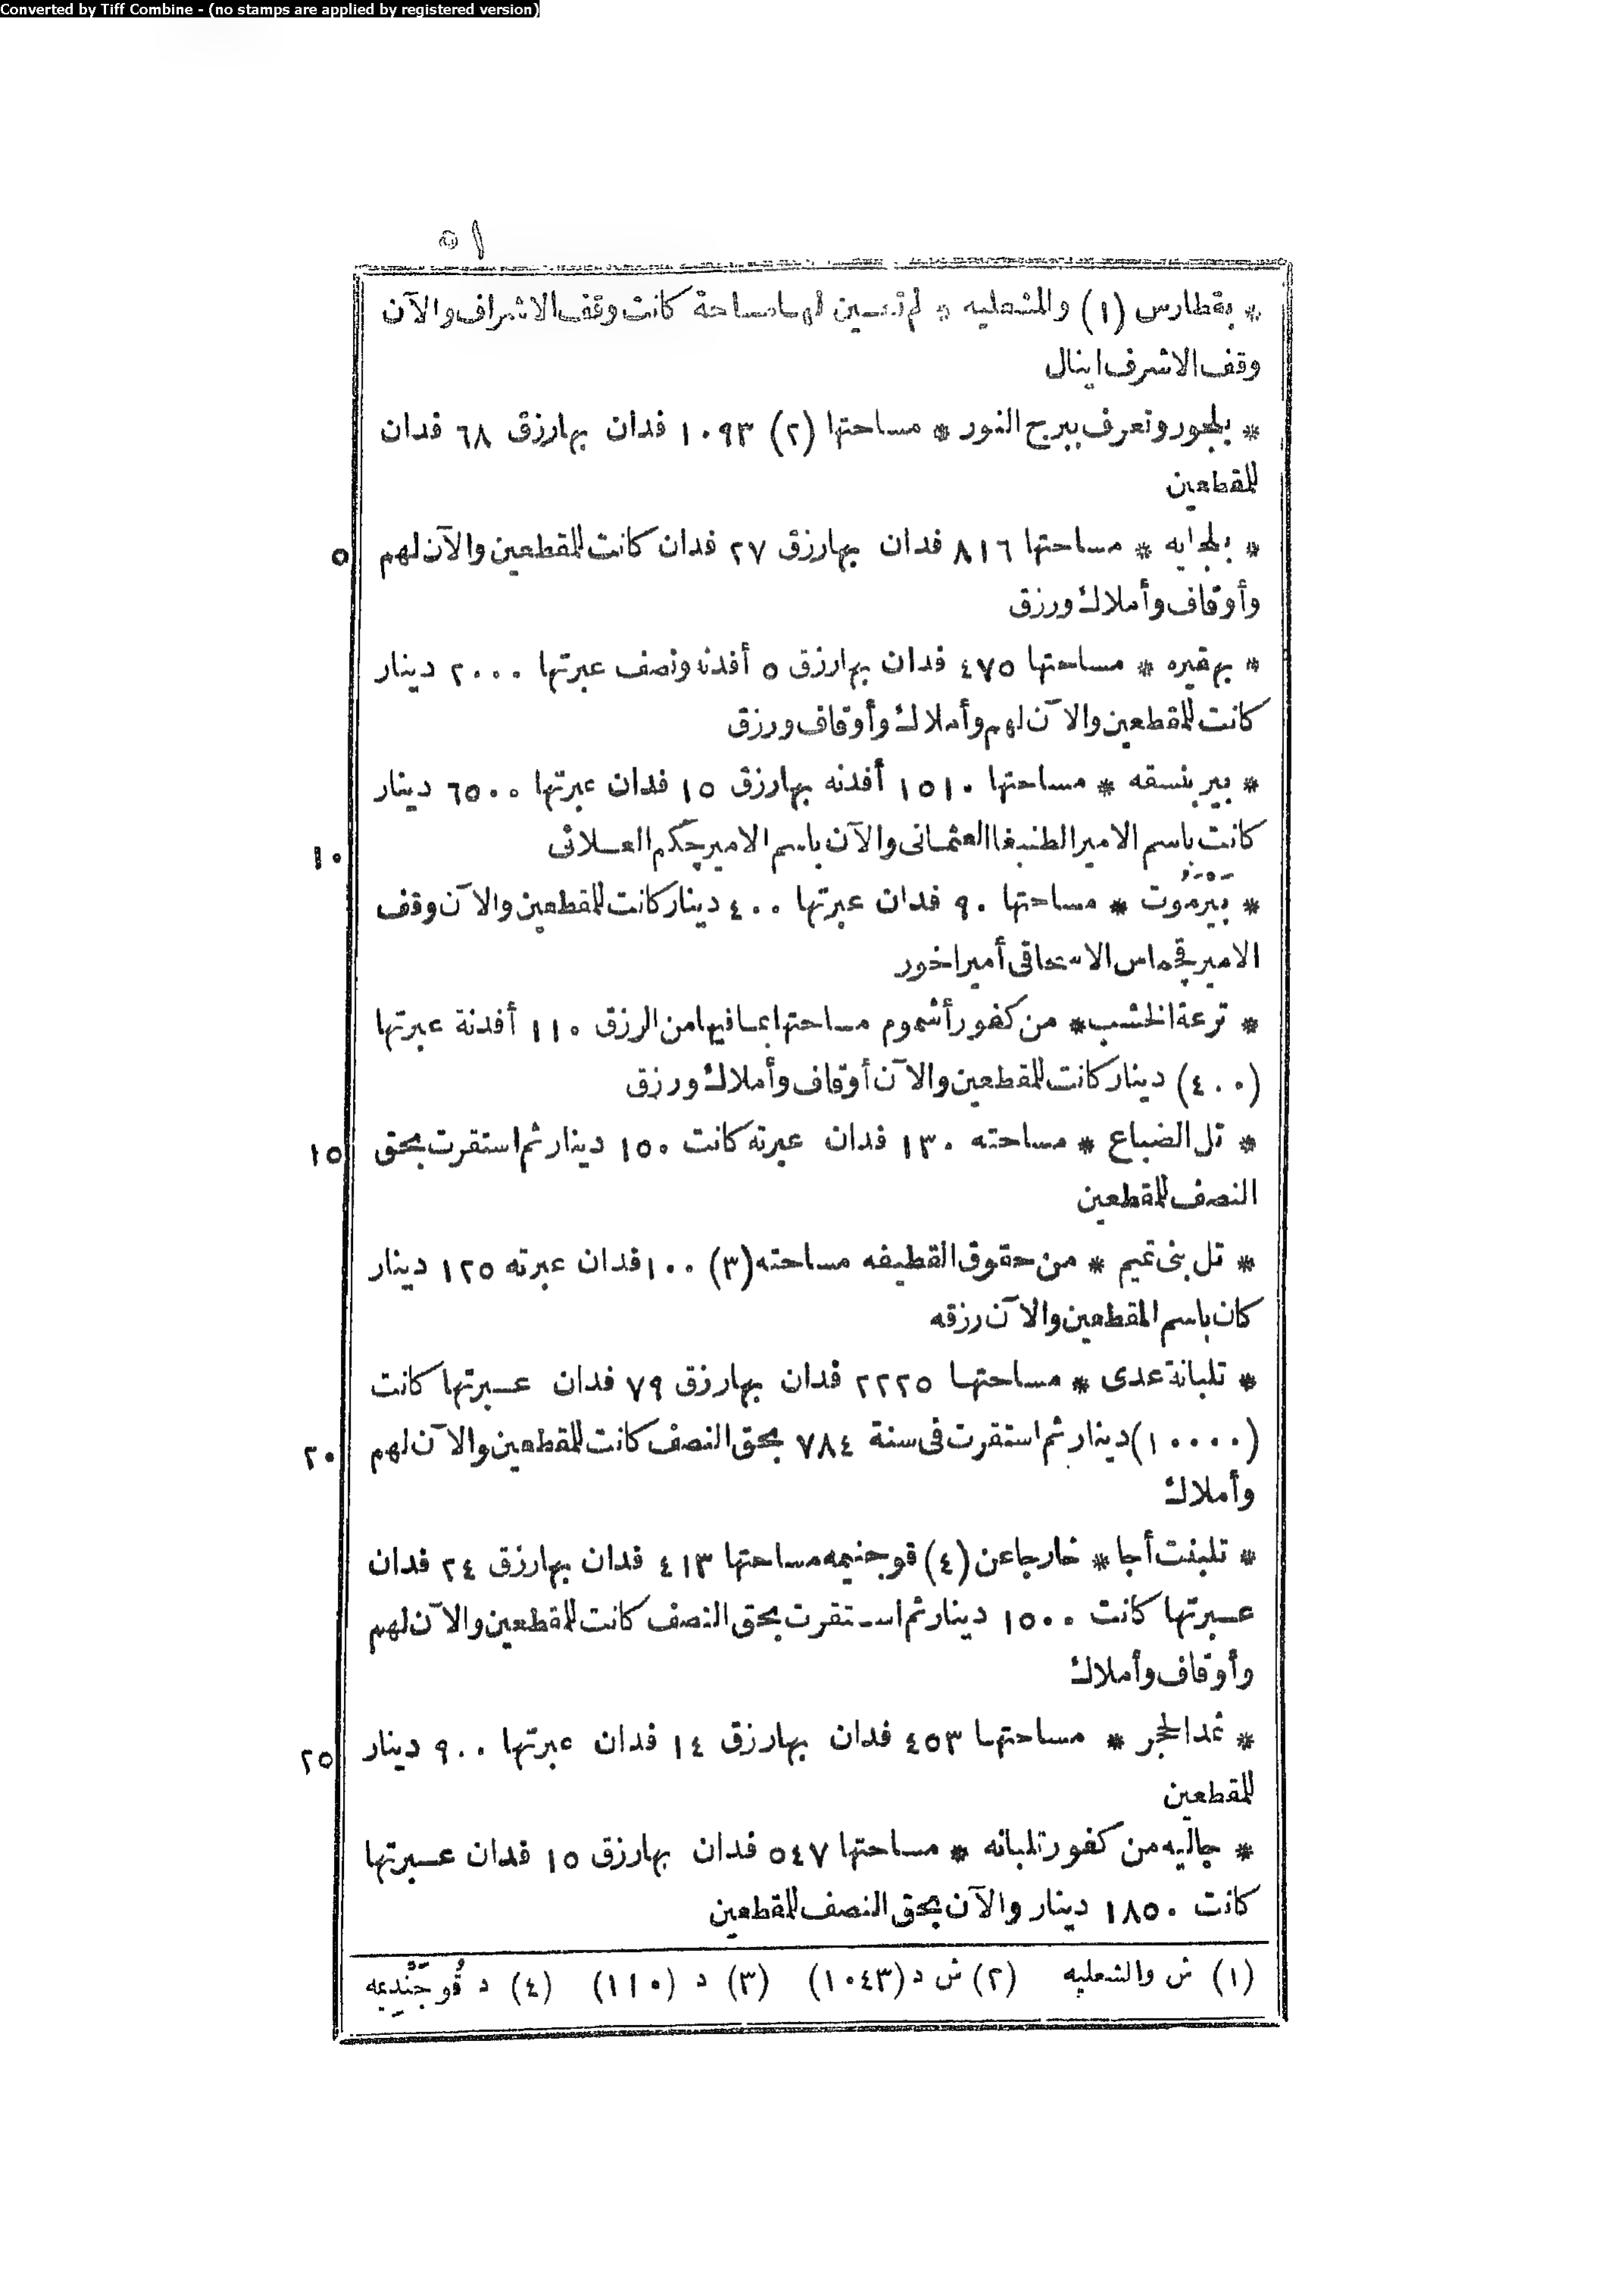 Converted by Tiff Combine - (no stamps are applied by registered version)
٥١
* بقطارس (١) والمشعليه * لم تعين لها مساحة كانت وقف الاشراف والآن
وقف الاشرف اينال
* بلجور وتعرف ببرج النور * مساحتها (٢) ١٠٩٣ فدان بها رزق ٦٨ فدان
للمقطعين
* بلجايه * مساحتها ٨١٦ فدان بها رزق ٢٧ فدان كانت للمقطعين والآن لهم ٥
وأوقاف وأملاك ورزق
* بهقيره * مساحتها ٤٧٥ فدان بها رزق ٥ أفدنه ونصف عبرتها ٢٠٠٠ دينار
كانت للمقطعين والآن لهم وأملاك وأوقاف ورزق
* بير بنسقه * مساحتها ١٥١٠ أفدنه بها رزق ١٥ فدان عبرتها ٦٥٠٠ دينار
كانت باسم الامير الطنبغا العثمانى والآن باسم الامير جكم العلائى ١٠
* بيرموت * مساحتها ٩٠ فدان عبرتها ٤٠٠ دينار كانت للمقطعين والآن وقف
الامير قجماس الاسحاقى أميراخور
* ترعة الخشب * من كفور أشموم مساحتها بما فيها من الرزق ١١٠ أفدنة عبرتها
(٤٠٠) دينار كانت للمقطعين والآن أوقاف وأملاك ورزق
* تل الضباع * مساحته ١٣٠ فدان عبرته كانت ١٥٠ دينار ثم استقرت بحق ١٥
النصف للمقطعين
* تل بنى تميم * من حقوق القطيفه مساحته (٣) ١٠٠ فدان عبرته ١٢٥ دينار
كان باسم المقطعين والآن رزقه
* تلبانة عدى * مساحتها ٢٢٢٥ فدان بها رزق ٧٩ فدان عبرتها كانت
(١٠٠٠٠) دينار ثم استقرت فى سنة ٧٨٤ بحق النصف كانت للمقطعين والآن لهم ٢٠
وأملاك
* تلبنت أجا * خارجا عن (٤) قوجنيمه مساحتها ٤١٣ فدان بها رزق ٢٤ فدان
عبرتها كانت ١٥٠٠ دينار ثم استقرت بحق النصف كانت للمقطعين والآن لهم
وأوقاف وأملاك
* ثمد الحجر * مساحتها ٤٥٣ فدان بها رزق ١٤ فدان عبرتها ٩٠٠ دينار ٢٥
للمقطعين
* جاليه من كفور تلبانه * مساحتها ٥٤٧ فدان بها رزق ١٥ فدان عبرتها
كانت ١٨٥٠ دينار والآن بحق النصف للمقطعين
(١) ش والشعليه (٢) ش د (١٠٤٣) (٣) د (١١٠) (٤) د